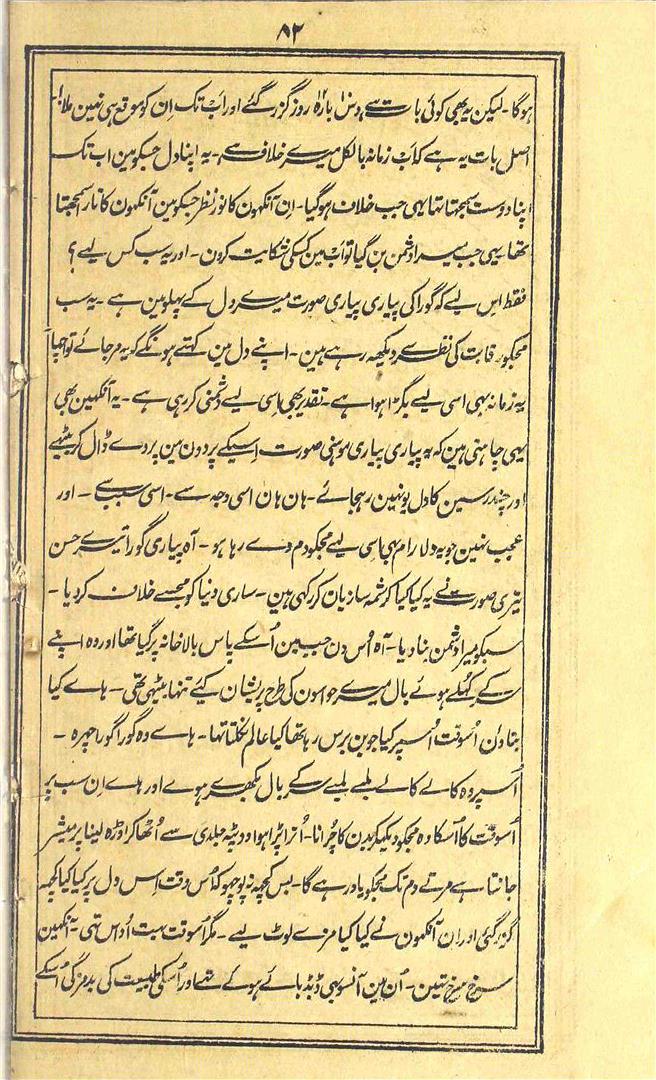 ۸۲
ہوگا۔ لیکن یہ بھی کوئی بات ہے دس بارہ روز گزر گئے اور اب تک ان کو موقع ہی نہین ملا!۔
اصل بات یہ ہے کہ اب زمانہ بالکل میرے خلاف ہے۔ یہ اپنا دل جسکو مین اب تک
اپنا دوست سمجھتا تھا یہی جب خلاف ہوگیا۔ اِن آنکھون کا نور نظر جسکو مین آنکھون کا تارا سمجھتا
تھا یہی جب میرا دشمن بن گیا تو اب مین کسکی شکایت کرون۔ اور یہ سب کس لیے؟
فقط اِس لیے کہ گورا کی پیاری پیاری صورت میرے دل کے پہلو مین ہے۔ یہ سب
مجکو رقابت کی نظر سے دیکھہ رہے ہین۔ اپنے دل مین کہتے ہونگے کہ یہ مر جائے تو اچھا
یہ زمانہ بہی اسی لیے بگڑا ہوا ہے۔ تقدیر بھی اِسی لیے دشمنی کر رہی ہے۔ یہ آنکھین بھی
یہی چاہتی ہین کہ یہ پیاری پیاری موہنی صورت اسیکے پردون مین پردے ڈال کر بیٹھے
اور چندر سین کا دل یونہین رہجائے۔ ہان ہان اسی وجہ سے۔ اسی سبب سے۔ اور
عجب نہین جو یہ دلارام بہی اِسی لیے مجکو دم دے رہا ہو۔ آہ پیاری گورا تیرے حسن
تیری صورت نے یہ کیا کیا کرشمہ سازیان کر رکھی ہین۔ ساری دنیا کو مجسے خلاف کردیا۔
سبکو میرا دشمن بنا دیا۔ آہ اُس دن جب مین اُسکے پاس بالاخانہ پر گیا تھا اور وہ اپنے
سر کے کہلے ہوئے بال میرے حواسون کی طرح پریشان کیے تنہا بیٹھی تھی۔ ہاے کیا
بتاؤن اُسوقت اُسپر کیا جوبن برس رہا تھا کیا عالم نکلتا تھا۔ ہاے وہ گورا گورا چہرہ۔
اُسپر وہ کالے کالے لمبے لمبے سر کے بال بکھرے ہوے اور ہاے اِن سب پر
اُسوقت کا اُسکا وہ مجکو دیکھکر بدن کا چُرانا۔ اُترا پڑا ہوا دوپٹہ جلدی سے اُٹھا کر اوڑہ لینا پرمیشر
جانتا ہے مرتے دم تک مجکو یاد رہے گا۔ بس کچھہ نہ پوچھو کہ اُس وقت اِس دل پر کیا کیا کچھہ
گزر گئی اور ان آنکھون نے کیا کیا مزے لوٹ لیے۔ مگر اُسوقت بہت اُداس تھی۔ آنکھین
سرخ سرخ تہین۔ اُن مین آنسو بہی ڈبڈبائے ہوئے تھے اور اُسکی طبیعت کی بدمزگی اُسکے